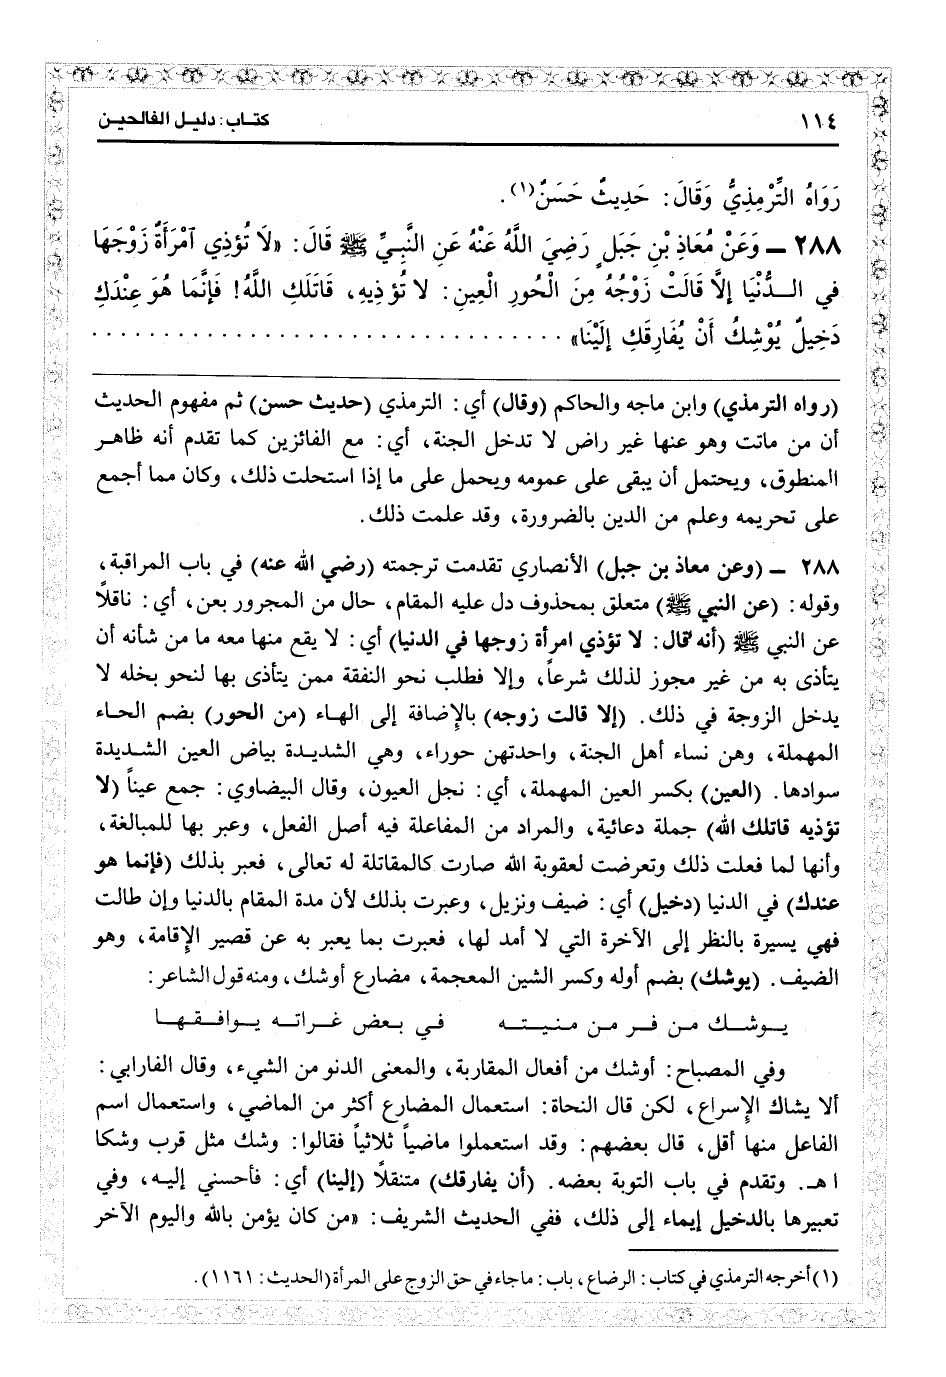 ١١٤
كتاب: دليل الفالحين
رَوَاهُ التِّرْمِذِيُّ وَقَالَ: حَدِيثٌ حَسَنٌ(١).
٢٨٨ ـ وَعَنْ مُعَاذِ بْنِ جَبَلٍ رَضِيَ اللَّهُ عَنْهُ عَنِ النَّبِيِّ ﷺ قَالَ: «لَا تُؤْذِي ٱمْرَأَةٌ زَوْجَهَا
في الـدُّنْيَا إلَّا قَالَتْ زَوْجُهُ مِنَ الْحُورِ الْعِينِ: لا تُؤْذِيهِ، قَاتَلَكِ اللَّهُ! فَإِنَّمَا هُوَ عِنْدَكِ
دَخِيلٌ يُوْشِكُ أَنْ يُفَارِقَكِ إِلَيْنَا» . . . . . . . . . . . . . . . . . . . . . . . . . . . . . . . .
(رواه الترمذي) وابن ماجه والحاكم (وقال) أي: الترمذي (حديث حسن) ثم مفهوم الحديث
أن من ماتت وهو عنها غير راض لا تدخل الجنة، أي: مع الفائزين كما تقدم أنه ظاهر
المنطوق، ويحتمل أن يبقى على عمومه ويحمل على ما إذا استحلت ذلك، وكان مما أجمع
على تحريمه وعلم من الدين بالضرورة، وقد علمت ذلك.
٢٨٨ ـ (وعن معاذ بن جبل) الأنصاري تقدمت ترجمته (رضي الله عنه) في باب المراقبة،
وقوله: (عن النبي ﷺ) متعلق بمحذوف دل عليه المقام، حال من المجرور بعن، أي: ناقلاً
عن النبي ﷺ (أنه قال: لا تؤذي امرأة زوجها في الدنيا) أي: لا يقع منها معه ما من شأنه أن
يتأذى به من غير مجوز لذلك شرعاً، وإلا فطلب نحو النفقة ممن يتأذى بها لنحو بخله لا
يدخل الزوجة في ذلك. (إلا قالت زوجه) بالإضافة إلى الهاء (من الحور) بضم الحاء
المهملة، وهن نساء أهل الجنة، واحدتهن حوراء، وهي الشديدة بياض العين الشديدة
سوادها. (العين) بكسر العين المهملة، أي: نجل العيون، وقال البيضاوي: جمع عيناً (لا
تؤذيه قاتلك الله) جملة دعائية، والمراد من المفاعلة فيه أصل الفعل، وعبر بها للمبالغة،
وأنها لما فعلت ذلك وتعرضت لعقوبة الله صارت كالمقاتلة له تعالى، فعبر بذلك (فإنما هو
عندك) في الدنيا (دخيل) أي: ضيف ونزيل، وعبرت بذلك لأن مدة المقام بالدنيا وإن طالت
فهي يسيرة بالنظر إلى الآخرة التي لا أمد لها، فعبرت بما يعبر به عن قصير الإقامة، وهو
الضيف. (يوشك) بضم أوله وكسر الشين المعجمة، مضارع أوشك، ومنه قول الشاعر:
يـوشـك مـن فـر مـن مـنيـتـه في بـعض غـراتـه يـوافـقـهـا
وفي المصباح: أوشك من أفعال المقاربة، والمعنى الدنو من الشيء، وقال الفارابي:
ألا يشاك الإسراع، لكن قال النحاة: استعمال المضارع أكثر من الماضي، واستعمال اسم
الفاعل منها أقل، قال بعضهم: وقد استعملوا ماضياً ثلاثياً فقالوا: وشك مثل قرب وشكا
ا هـ. وتقدم في باب التوبة بعضه. (أن يفارقك) متنقلاً (إلينا) أي: فأحسني إليه، وفي
تعبيرها بالدخيل إيماء إلى ذلك، ففي الحديث الشريف: «من كان يؤمن بالله واليوم الآخر
(١) أخرجه الترمذي في كتاب: الرضاع، باب: ما جاء في حق الزوج على المرأة (الحديث: ١١٦١).